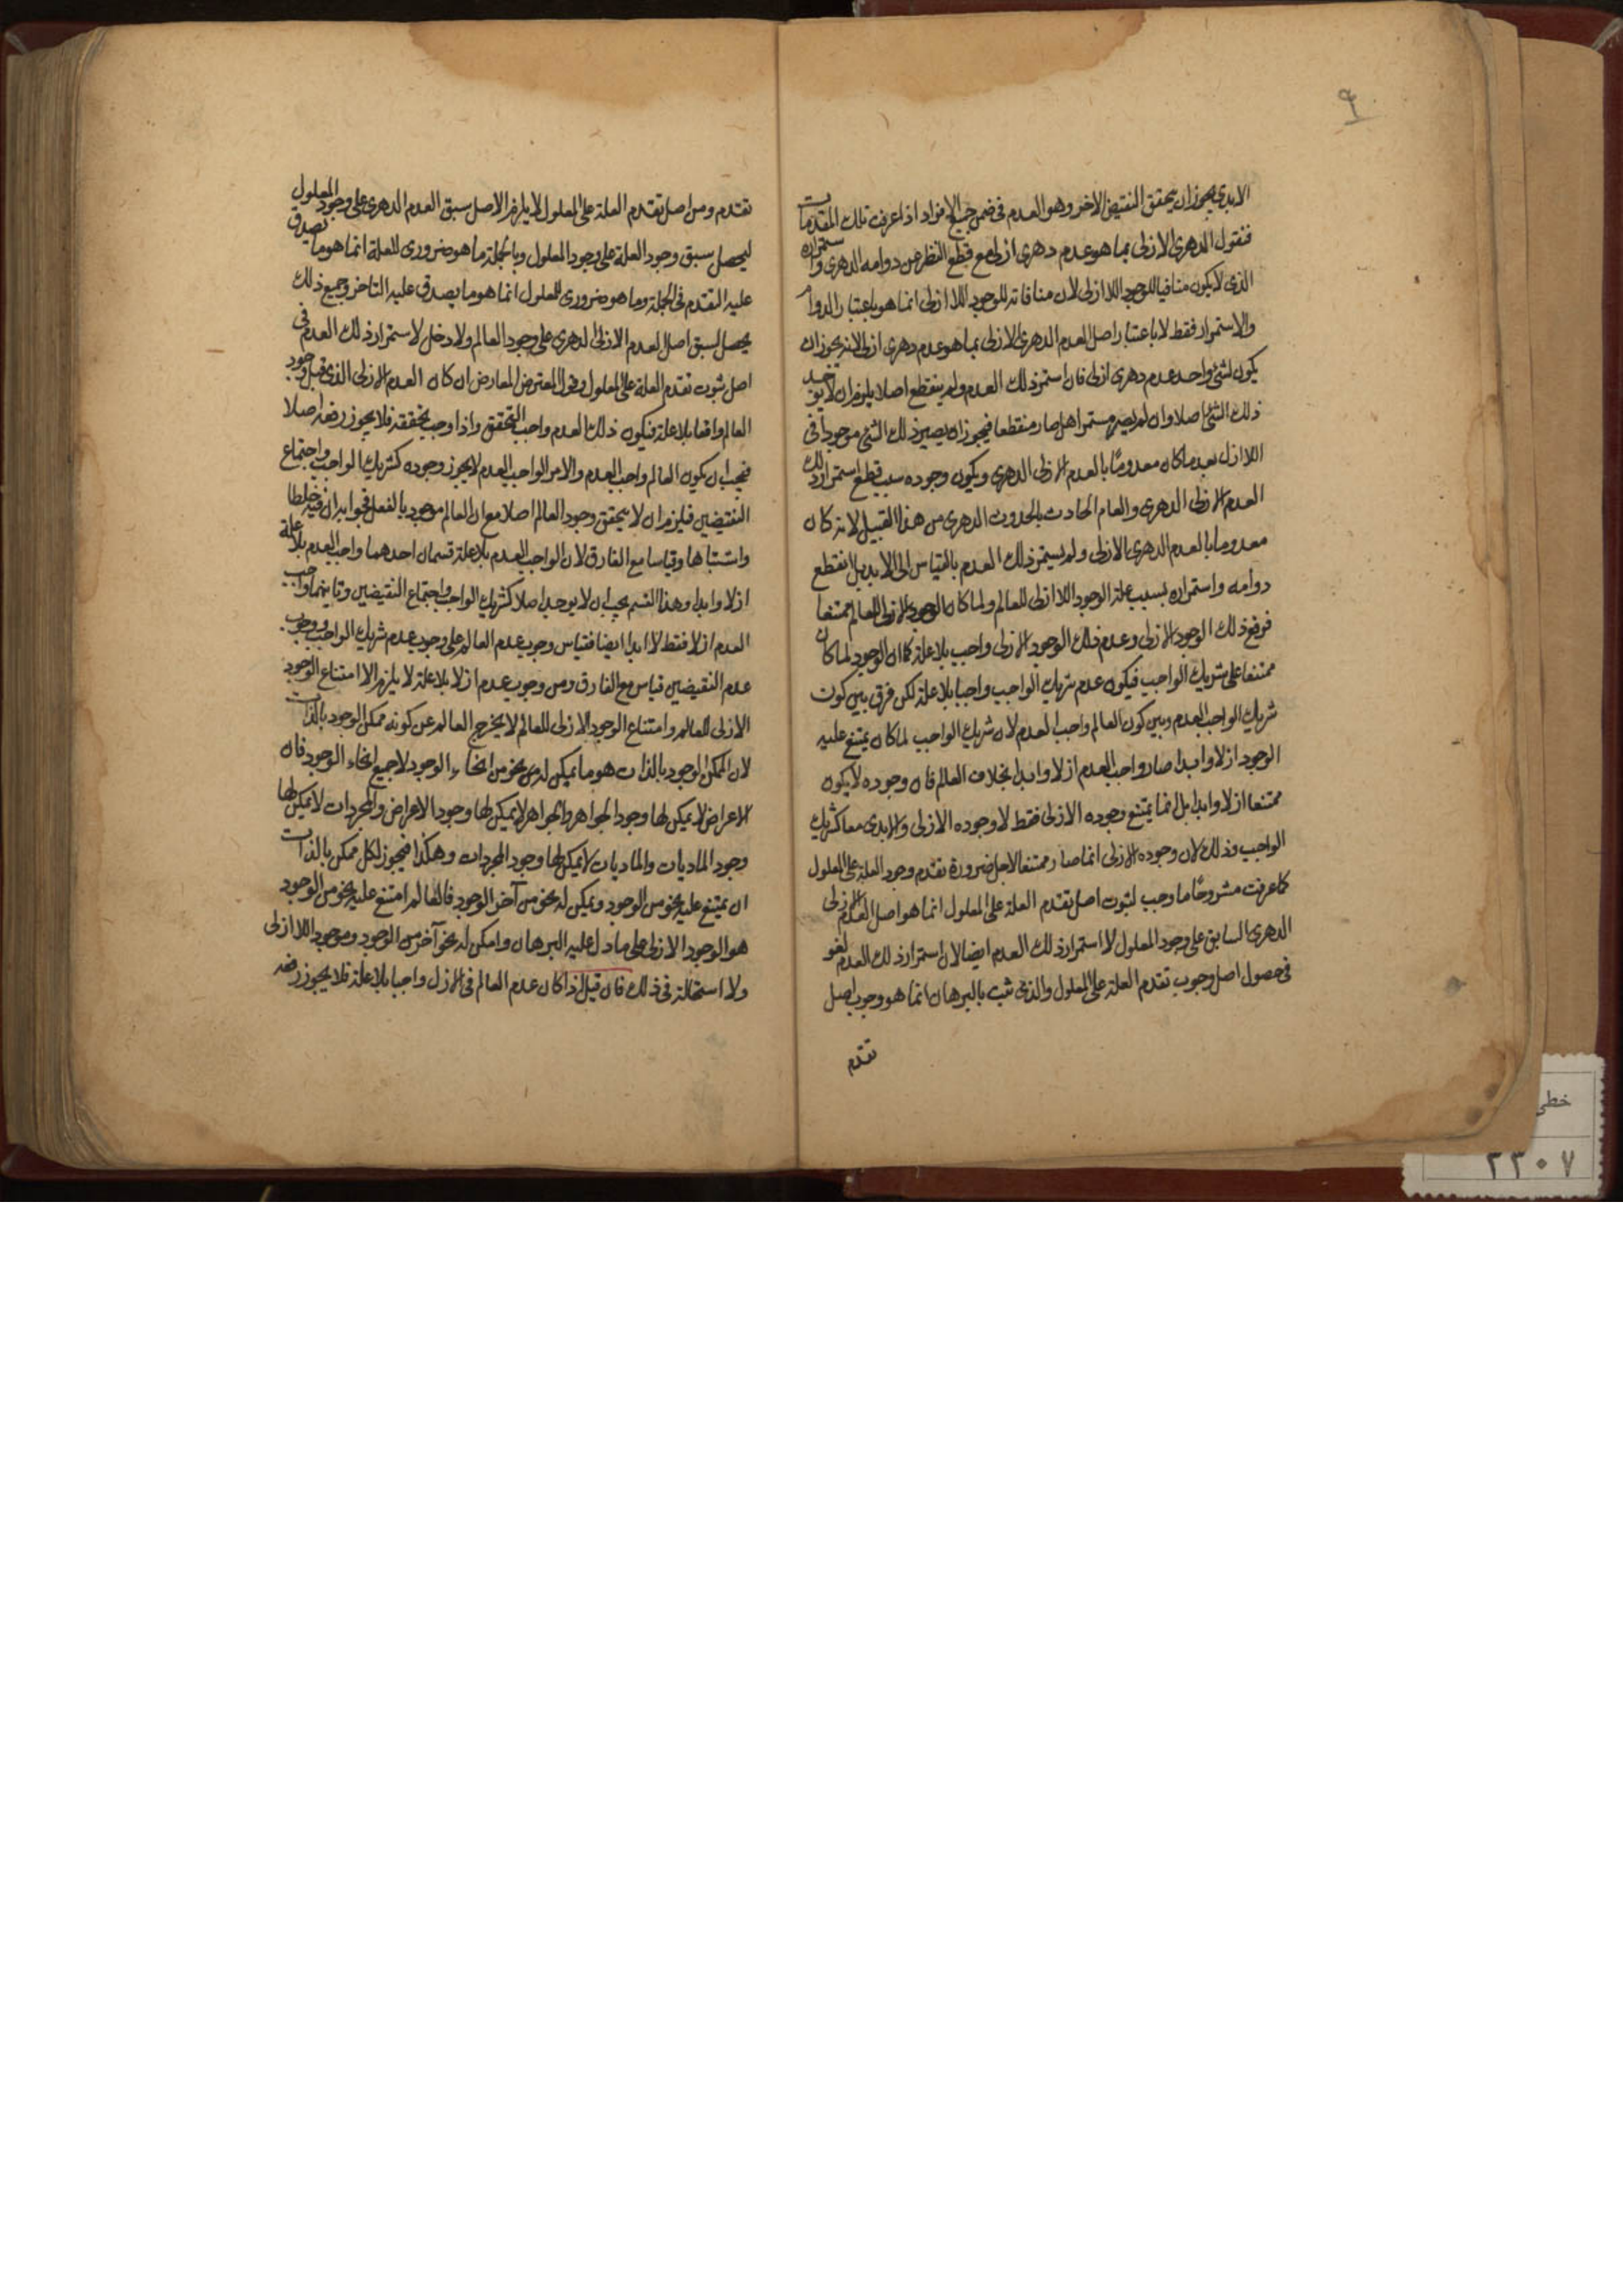 ٩
الابدى يجوز ان يتحقق النقيض الاخر وهو العدم فى ضمن جميع الافراد اذا عرفت تلك المقدمات
فنقول الدهرى الازلى بما هو عدم دهرى ازلى مع قطع النظر عن دوامه الدهرى واستمراره
الذى لا يكون منافيا للوجود اللاازلى لان منافاته للوجود اللاازلى انما هو باعتبار الدوام
والاستمرار فقط لا باعتبار اصل العدم الدهرى الازلى بما هو عدم دهرى ازلى لانه يجوز ان
يكون لشئ واحد عدم دهرى ازلى فان استمر ذلك العدم ولم ينقطع اصلا يلزم ان لا يوجد
ذلك الشئ اصلا وان لم يصر مستمرا بل صار منقطعا فيجوز ان يصير ذلك الشئ موجودا فى
اللاازل بعد ما كان معدومًا بالعدم الازلى الدهرى ويكون وجوده سبب قطع استمرار ذلك
العدم الازلى الدهرى والعالم الحادث بالحدوث الدهرى من هذا القبيل لانه كان
معدوما بالعدم الدهرى الازلى ولم يستمر ذلك العدم بالقياس الى الابد بل انقطع
دوامه واستمراره بسبب علة الوجود اللاازلى للعالم ولما كان الوجود الازلى للعالم ممتنعا
فرفع ذلك الوجود الازلى وعدم ذلك الوجود الازلى واجب بلا علة كما ان الوجود لما كان
ممتنعا على شريك الواجب فيكون عدم شريك الواجب واجبا بلا علة لكن فرق بين كون
شريك الواجب واجب العدم وبين كون العالم واجب العدم لان شريك الواجب لما كان يمتنع عليه
الوجود ازلا وابدا صار واجب العدم ازلا وابدا بخلاف العالم فان وجوده لا يكون
ممتنعا ازلا وابدا بل انما يمتنع وجوده الازلى فقط لا وجوده الازلى والابدى معا كشريك
الواجب وذلك لان وجوده الازلى انما صار ممتنعا لاجل ضرورة تقدم وجود العلة على المعلول
كما عرفت مشروحًا ما وجب لثبوت اصل تقدم العلة على المعلول انما هو اصل العدم الازلى
الدهرى السابق على وجود المعلول لا استمرار ذلك العدم ايضا لان استمرار ذلك العدم لغو
فى حصول اصل وجوب تقدم العلة على المعلول والذى ثبت بالبرهان انما هو وجوب اصل
تقدم
تقدم ومن اصل تقدم العلة على المعلول لا يلزم الا اصل سبق العدم الدهرى على وجود المعلول
ليحصل سبق وجود العلة على وجود المعلول وبالجملة ما هو ضرورى للعلة انما هو ما يصدق
عليه التقدم فى الجملة وما هو ضرورى للمعلول انما هو ما يصدق عليه التاخر وجميع ذلك
يحصل لسبق اصل العدم الازلى الدهرى على وجود العالم ولا دخل لاستمرار ذلك العدم فى
اصل ثبوت تقدم العلة على المعلول وقول المعترض المعارض ان كان العدم الازلى الذى قبل وجود
العالم واقعا بلا علة فيكون ذلك العدم واجب التحقق واذا وجب تحققه فلا يجوز رفعه اصلا
فيجب ان يكون العالم واجب العدم والامر الواجب العدم لا يجوز وجوده كشريك الواجب واجتماع
النقيضين فيلزم ان لا يتحقق وجود العالم اصلا مع ان العالم موجود بالفعل فجوابه ان فيه خلطا
واشتباها وقياسا مع الفارق لان الواجب العدم بلا علة قسمان احدهما واجب العدم بلا علة
ازلا وابدا وهذا القسم يجب ان لا يوجد اصلا كشريك الواجب واجتماع النقيضين وثانيهما واجب
العدم ازلا فقط لا ابدا ايضا فقياس وجوب عدم العالم على وجوب عدم شريك الواجب ووجوب
عدم النقيضين قياس مع الفارق ومن وجوب عدم ازلا بلا علة لا يلزم الا امتناع الوجود
الازلى للعالم وامتناع الوجود الازلى للعالم لا يخرج العالم عن كونه ممكن الوجود بالذات
لان الممكن الوجود بالذات هو ما يمكن له نحو من انحاء الوجود لا جميع انحاء الوجود فان
الاعراض لا يمكن لها وجود الجواهر والجواهر لا يمكن لها وجود الاعراض والمجردات لا يمكن لها
وجود الماديات والماديات لا يمكن لها وجود المجردات وهكذا فيجوز لكل ممكن بالذات
ان يمتنع عليه نحو من الوجود ويمكن له نحو من آخر الوجود فالعالم امتنع عليه نحو من الوجود
هو الوجود الازلى على ما دل عليه البرهان وامكن له نحو آخر من الوجود وهو وجود اللاازلى
ولا استحالة فى ذلك فان قيل اذا كان عدم العالم فى الازل واجبا بلا علة فلا يجوز رفعه
خطى
٢٣٠٧